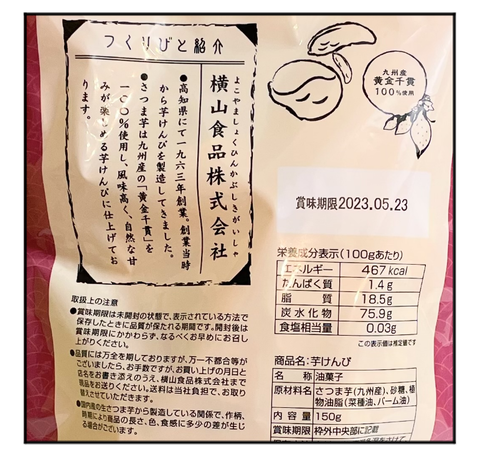 つくりびと紹介
よこやましょくひんかぶしきがいしゃ
横山食品株式会社
●高知県にて一九六三年創業。創業当時
から芋けんぴを製造してきました。
●さつま芋は九州産の「黄金千貫」を
一〇〇%使用し、風味高く、自然な甘
みが楽しめる芋けんぴに仕上げてお
ります。
九州産
黄金千貫
100%使用
賞味期限2023.05.23
栄養成分表示(100gあたり)
エネルギー 467kcal
たんぱく質 1.4g
脂質 18.5g
炭水化物 75.9g
食塩相当量 0.03g
この表示値は推定値です
取扱上の注意
●賞味期限は未開封の状態で、表示されている方法で
保存したときに品質が保たれる期間です。開封後は
賞味期限にかかわらず、なるべくお早めにお召し
上がりください。
●品質には万全を期しておりますが、万一不都合等が
ございましたら、お手数ですが、お買い上げの月日と
店名をお書き添えのうえ、横山食品株式会社まで
現品をお送りください。送料は当社負担で、お取り
替えさせていただきます。
●国内産の生さつま芋から製造している関係で、作柄、
時期により商品の長さ、色、食感に多少の差が生じ
る場合がございます。
商品名:芋けんぴ
名称 油菓子
原材料名 さつま芋(九州産)、砂糖、植
物油脂(菜種油、パーム油)
内容量 150g
賞味期限 枠外中央部に記載